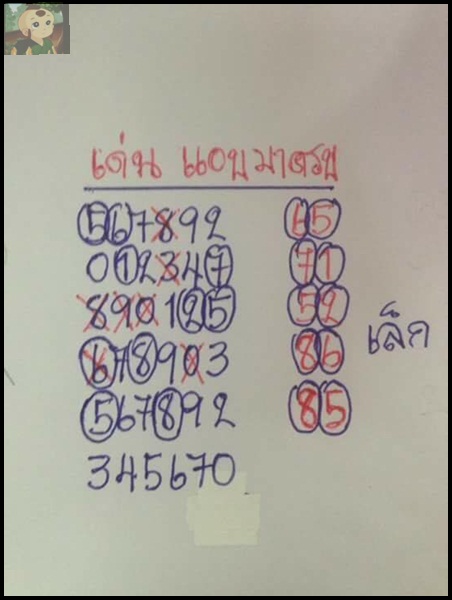 เด่น แอบมาครบ
567892 65
012347 71
890125 52
678903 86
เล็ก
567892 85
345670